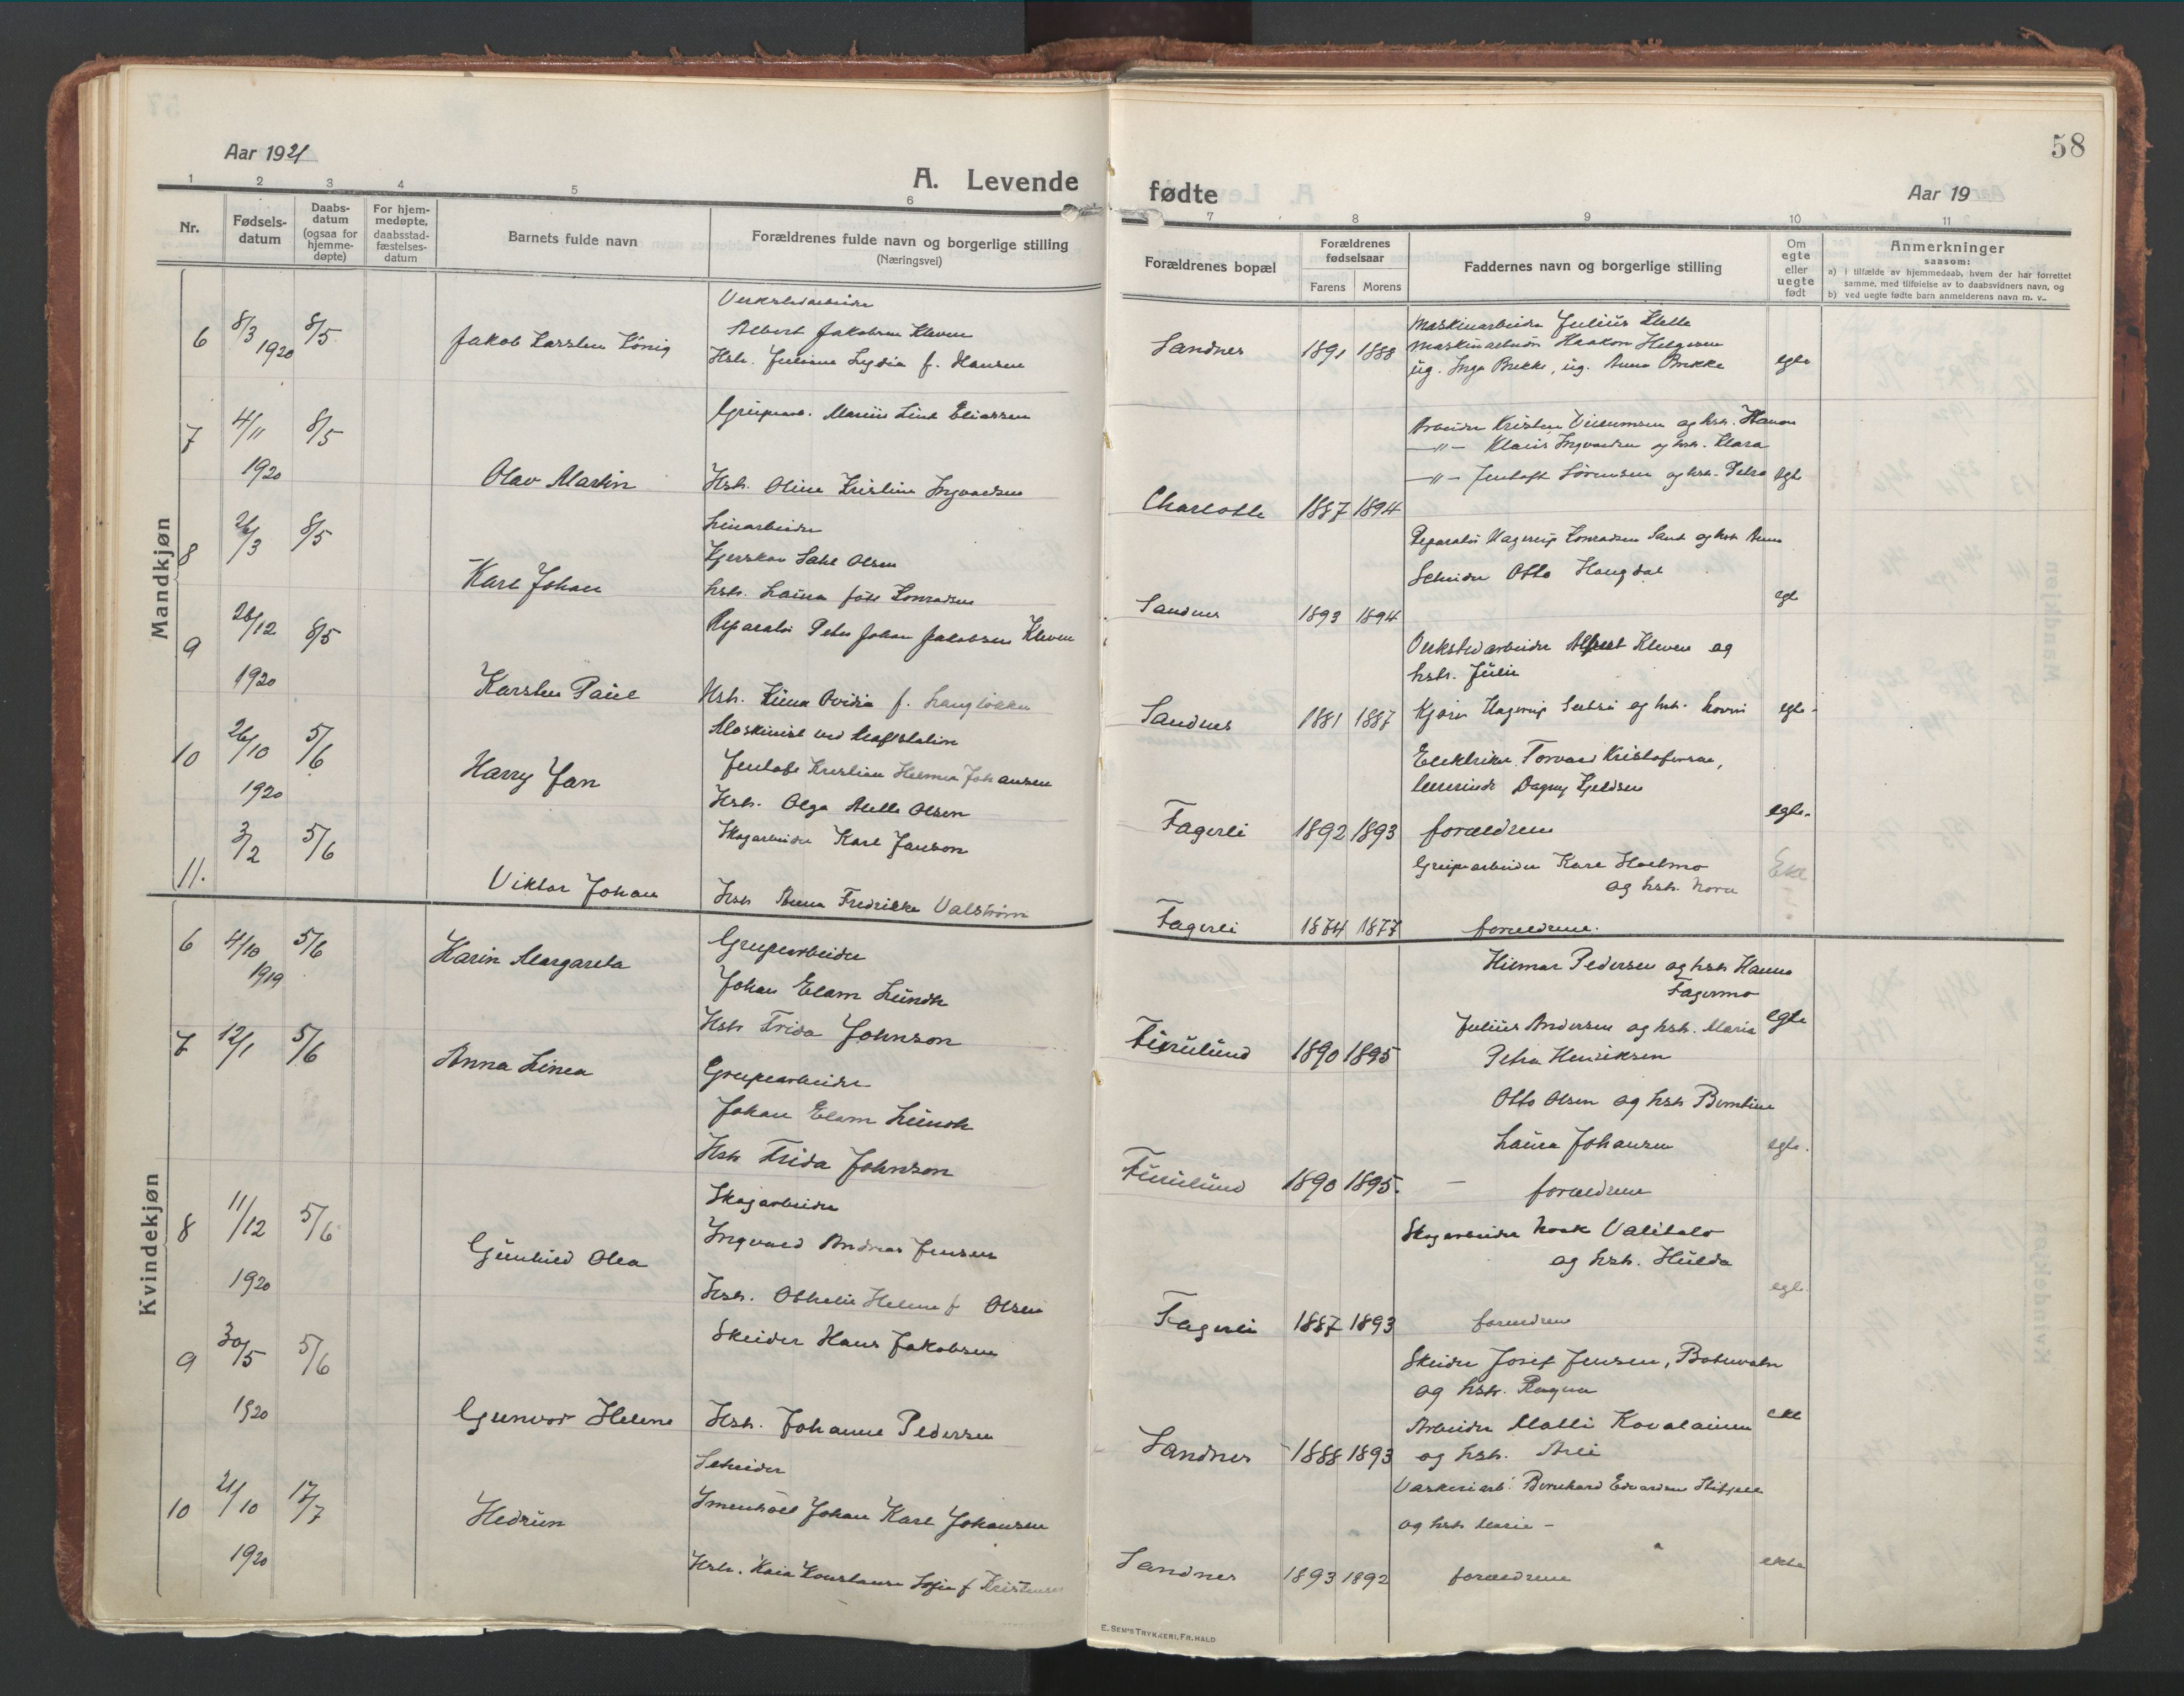 58
Aar 1921
A. Levende
fødte
Aar 19
1 2 3 4 5 6 7 8 9 10 11
Nr.
Fødsels-
datum
Daabs-
datum
(ogsaa for
hjemme-
døpte)
For hjem-
medøpte,
daabsstad-
fæstelses-
datum
Barnets fulde navn
Forældrenes fulde navn og borgerlige stilling
(Næringsvei)
Forældrenes bopæl
Forældrenes
fødselsaar
Farens Morens
Faddernes navn og borgerlige stilling
Om
egte
eller
uegte
født
Anmerkninger
saasom:
a) i tilfælde av hjemmedaab, hvem der har forrettet
samme, med tilføielse av to daabsvidners navn, og
b) ved uegte fødte barn anmelderens navn m. v..
Mandkjøn
6 8/3 1920 8/5
Jakob Karsten König
Verkstedarbeider
Albert Jakobsen Kleven
Hstr. Juliane Lydia f. Hansen
Sandnes 1891 1888
Maskinarbeider Julius
Maskinarbeider Haakon Helgesen
ug. Inga Brekke, ug. Anna Brekke
egte
7 4/11 1920 8/5
Olav Martin
Grubearb. Marius Lind Eliassen
Hstr. Oline Kristine Ingvardsen
Charlotte 1887 1894
Arbeider Kristen og hstr. Hanna
—"— Klaus Ingvardsen og hstr. Klara
—"— Jentoft Sörensen og hstr. Petra
egte
8 26/3 8/5
Karl Johan
Linarbeider
Olsen
hstr. Laura født Konradsen
Sandnes 1893 1894
Reparatör Hagerup Konradsen Sand og hstr Anna
Scheider Otto Haugdal
egte
9 26/12 1920 8/5
Karsten Paul
Reparatör Peter Johan Jakobsen Kleven
Hstr. Ovidia f. Langlökken
Sandnes 1881 1887
Verkstedarbeider Albert Kleven og
hstr. Julie
Kjörer Hagerup og hstr.
egte
10 26/10 1920 5/6
Harry Jan
Maskinist ved kraftstation
Jentoft Kristian Helmer Johansen
Hstr. Olga Olsen
Fagerli 1892 1893
Elektriker Torvald Kristofersen,
lærerinde Dagny Kjeldsen
forældrene
egte.
11. 3/2 5/6
Viktor Johan
Skogarbeider Karl Janson
Hstr Anna Fredrikke Valström
Fagerli 1874 1877
Grubearbeider Karl Holmo
og hstr. Nora
forældrene.
Kvindekjøn
6 4/10 1919 5/6
Karin Margareta
Grubearbeider
Johan Elam Lundh
Hstr Frida Johnson
Furulund 1890 1895
Hilmar Pedersen og hstr Hanna
Fagermo
Julius Andersen og hstr. Maria
Petra Henriksen
egte
7 12/1 5/6
Anna Linea
Grubearbeider
Johan Elam Lundh
Hstr Frida Johnson
Furulund 1890 1895.
Otto Olsen og hstr Berntine
Laura Johansen
— forældrene
egte.
8 11/12 1920 5/6
Gunhild Olea
Skogarbeider
Ingvald Andreas Jensen
Hstr. Othelie Helene f Olsen
Fagerli 1887 1893
Skogarbeider Noak Valitalo
og hstr. Hulda
forældrene
egte.
9 30/5 1920 5/6
Gunvor Helene
Skeider Hans Jakobsen
Hstr. Johanne Pedersen
Sandnes 1888 1893
Skeider Josef Jensen, Botnvatn
og hstr. Ragna
Arbeider Matti Kovalainen
og hstr.
ekte
10 21/10 1920 17/7
Hedrun
Scheider
Johan Karl Johansen
Hstr. Kaia Konstanse Sofie f Kristensen
Sandnes 1893 1892
Vaskeriarb. Bernhard Edvardsen
og hstr Marie —
forældrene
ekte
E. SEM'S TRYKKERI, FR. HALD